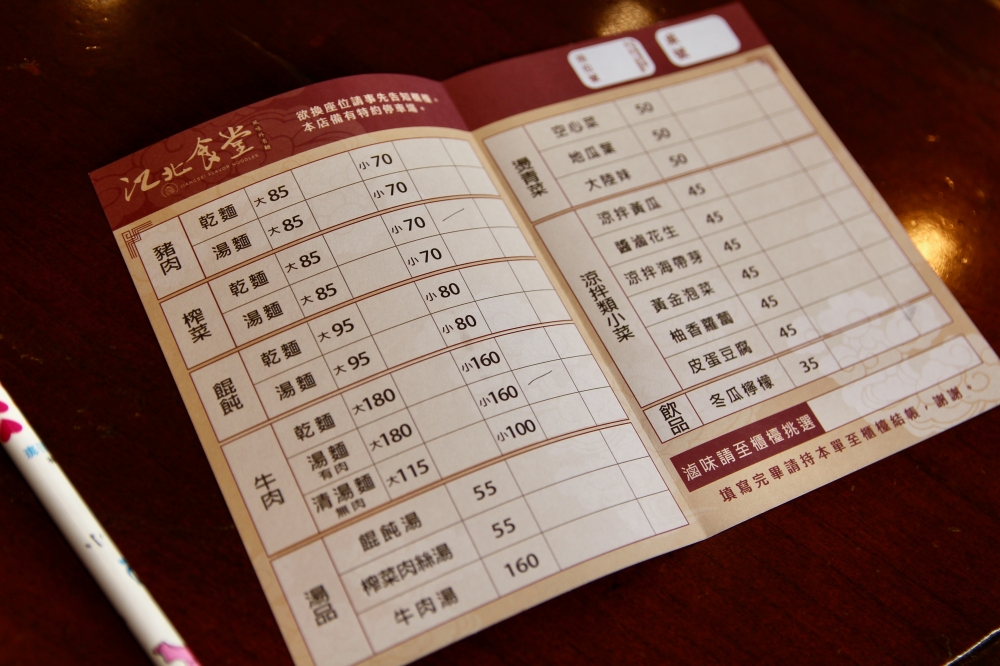 江北食堂
JIANGBEI FLAVOR NOODLES
欲換座位請事先告知櫃檯。
本店備有特約停車場。
豬肉
乾麵 大85 小70
湯麵 大85 小70
榨菜
乾麵 大85 小70
湯麵 大85 小70
餛飩
乾麵 大95 小80
湯麵 大95 小80
牛肉
乾麵 大180 小160
湯麵 有肉 大180 小160
清湯麵 無肉 大115 小100
湯品
餛飩湯 55
榨菜肉絲湯 55
牛肉湯 160
燙青菜
空心菜 50
地瓜葉 50
大陸妹 50
涼拌類小菜
涼拌黃瓜 45
醬滷花生 45
涼拌海帶芽 45
黃金泡菜 45
柚香蘿蔔 45
皮蛋豆腐 45
飲品
冬瓜檸檬 35
滷味請至櫃檯挑選
填寫完畢請持本單至櫃檯結帳，謝謝。